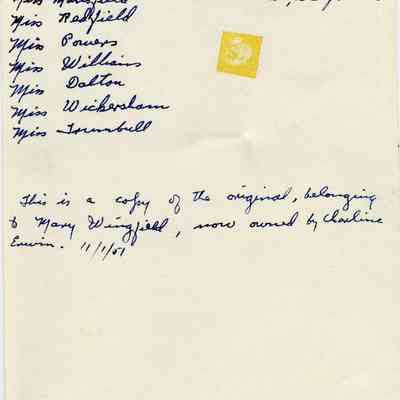 Miss Redfield
Miss Powers
Miss Williams
Miss Dalton
Miss Wickersham
Miss Trumbull
This is a copy of the original, belonging
to Mary Wingfield, now owned by Charline
Erwin. 11/1/51